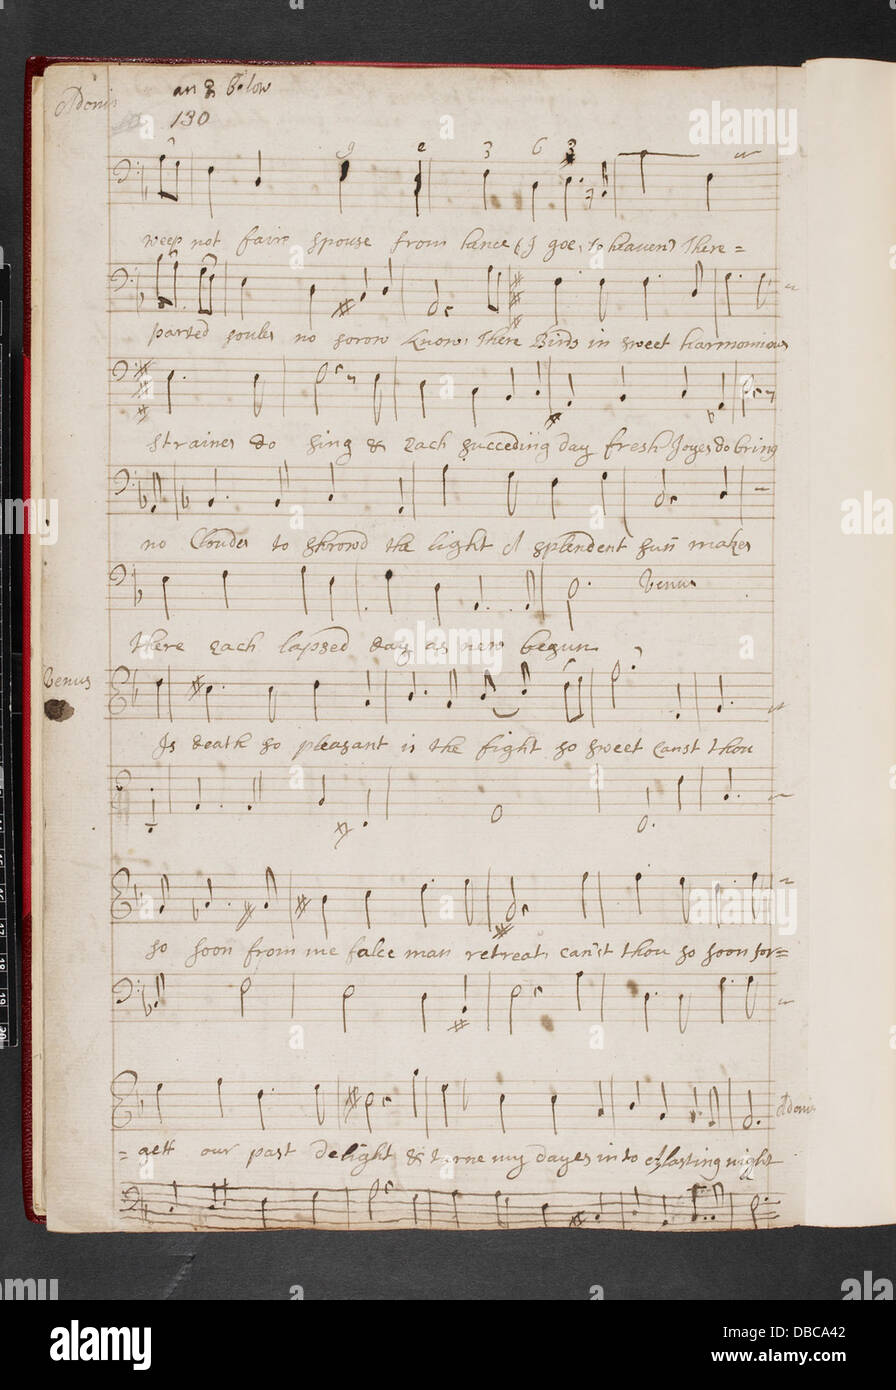 Adonis
an 8 below
130
9 2 3 6 3
weep not fair spouse from hence (I goe, to heaven) There =
parted soules no sorow know, There Birds in sweet harmonious
straines do sing & Each succeding day fresh Joyes do bring
no Cloudes to shrowd the light of splendent sun makes
Venus
there each lapsed day as new begun
Venus
Is death so pleasant is the fight so sweet canst thou
so soon from me false man retreat, can'st thou so soon for=
= gett our past delight & turne my dayes into lasting night
Adonis
alamy
alamy
Image ID: DBCA42
www.alamy.com